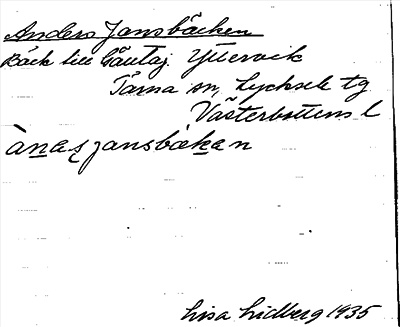 Anders Jansbäcken
Bäck till Gäutaj Yttervik
Tärna sn, Lycksele tg
Västerbottens l
ànaʂ jansbäkan
Lisa Lidberg 1935